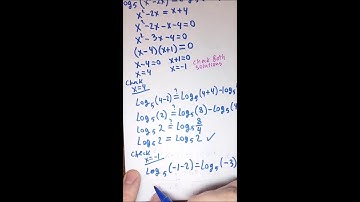 log₅(x²-2x)
x²-2x = x+4
x²-2x-x-4=0
x²-3x-4=0
(x-4)(x+1)=0
x-4=0 x+1=0 Check Both
x=4 x=-1 Solutions
Check
x=4
Log₅(4-2) ?= Log₅(4+4)-log₅
Log₅(2) ?= Log₅(8)-Log₅(4
Log₅2 ?= Log₅ 8/4
Log₅2 = Log₅2 ✓
Check
x=-1
Log₅(-1-2)=Log₅(-3)